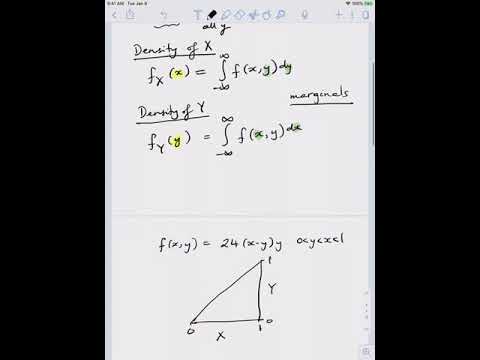 9:41 AM Tue Jan 9
all y
Density of X
f_X(x) = ∫_{-∞}^{∞} f(x,y) dy
marginals
Density of Y
f_Y(y) = ∫_{-∞}^{∞} f(x,y) dx
f(x,y) = 24(x-y)y 0<y<x<1
1
Y
0 1 0
X